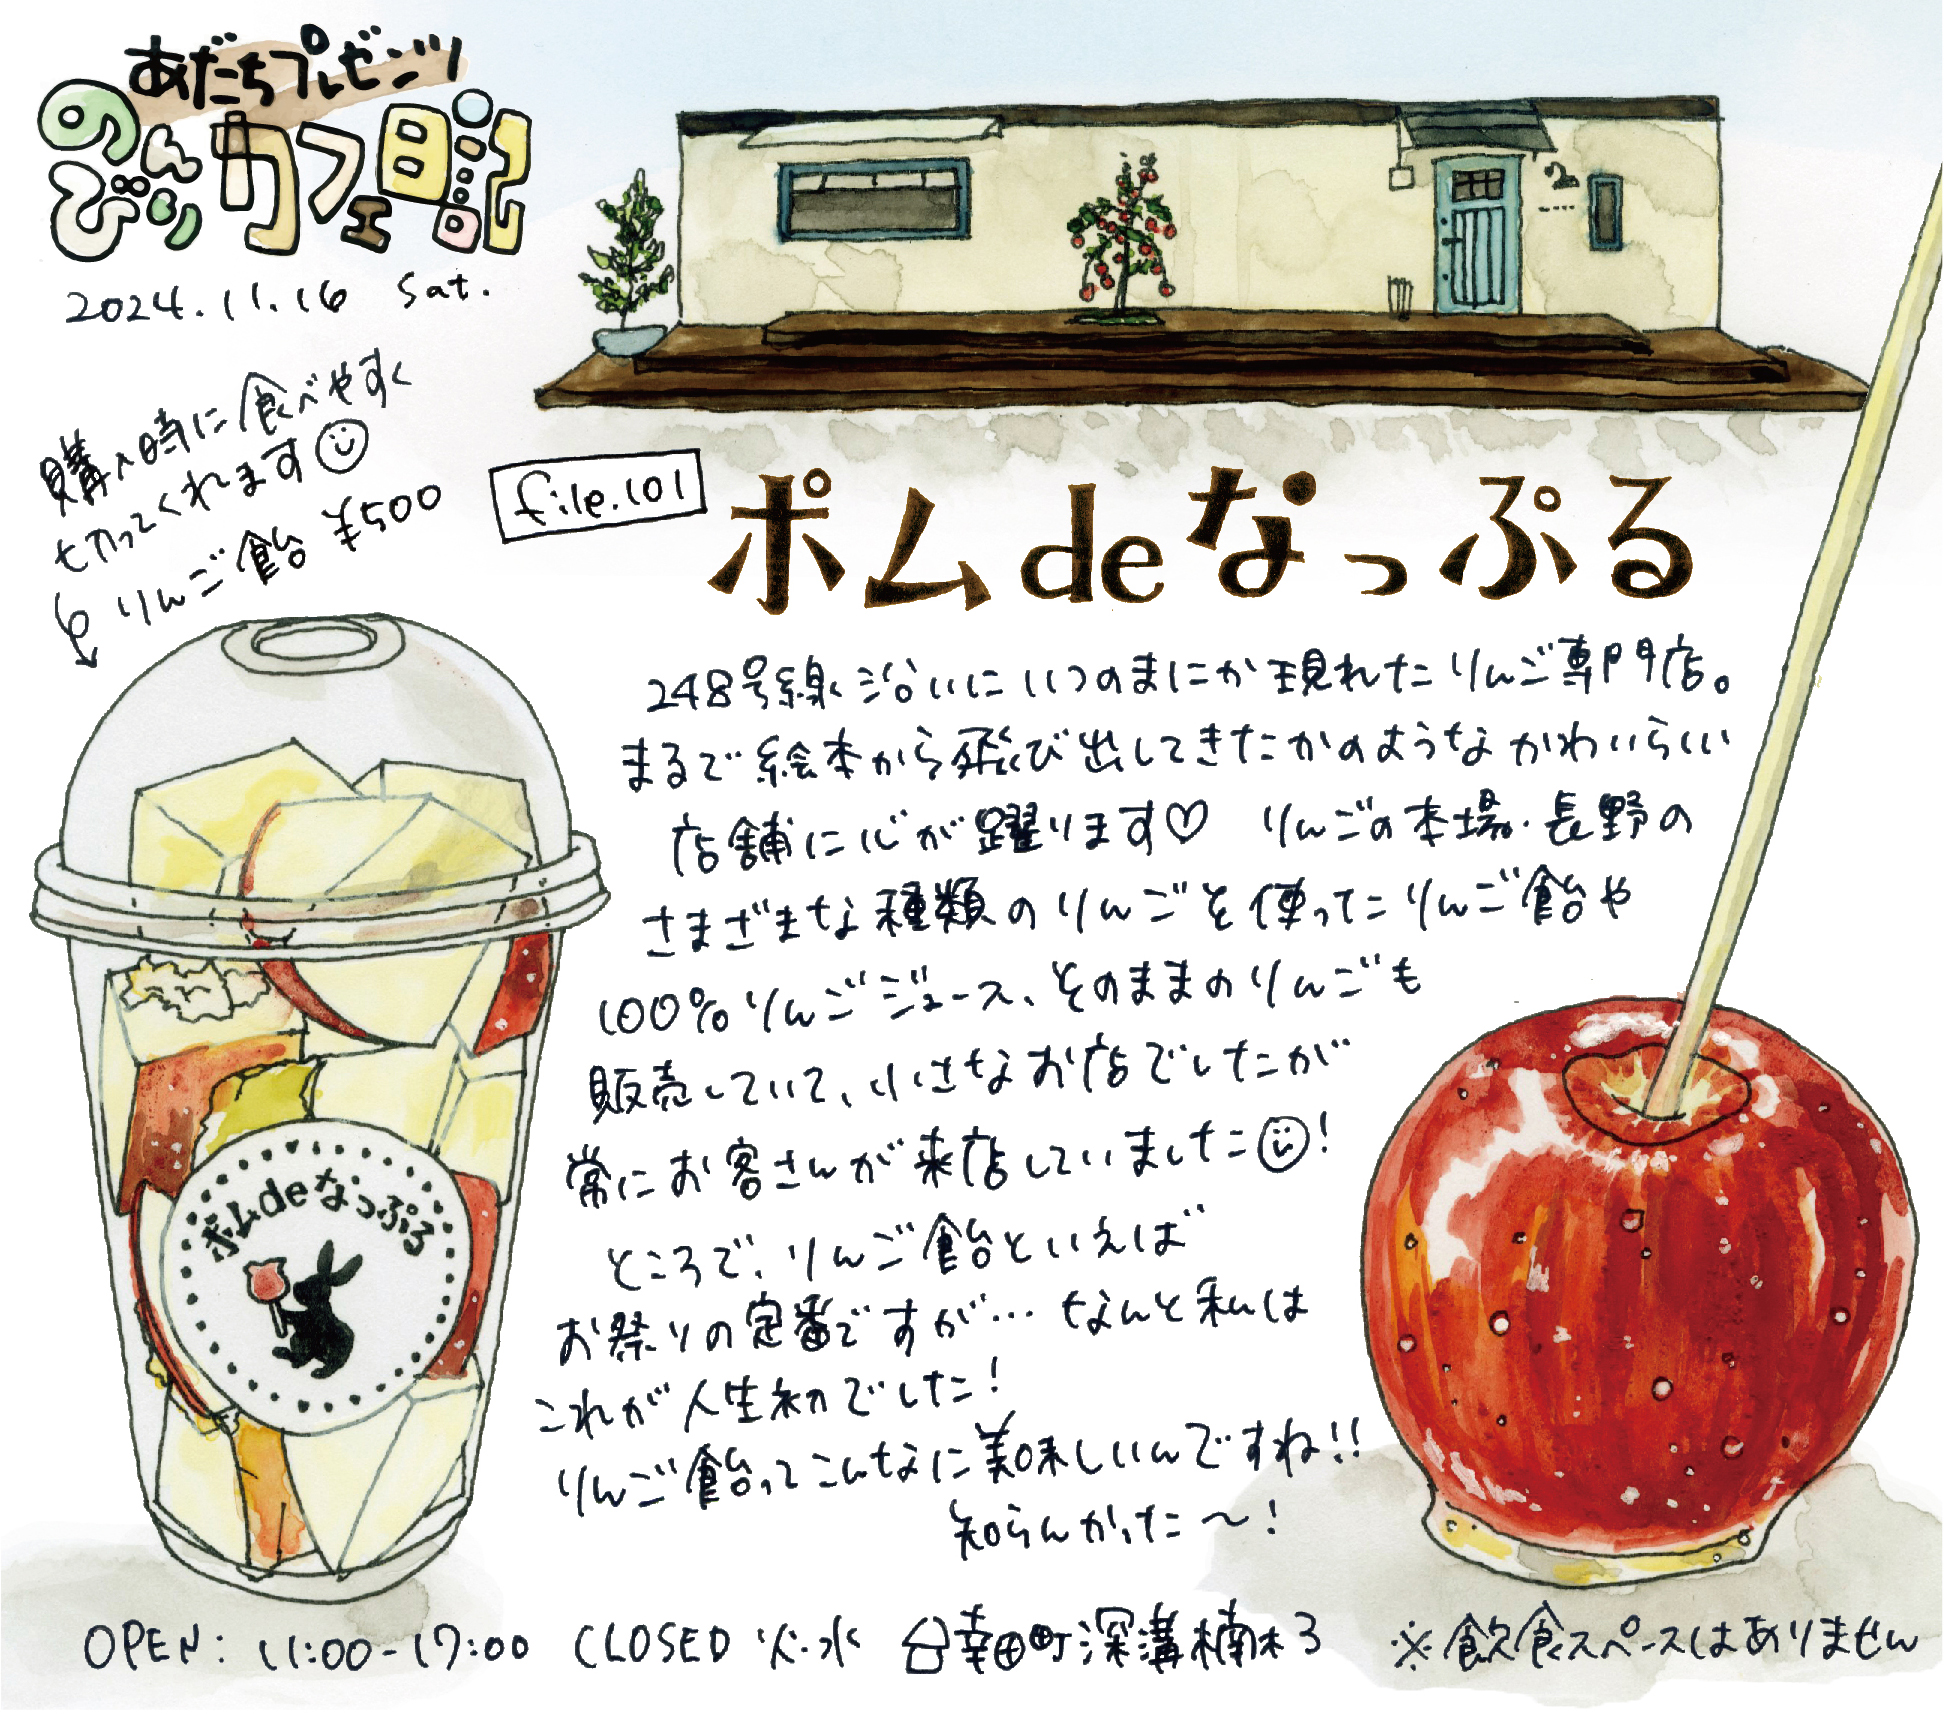 あだちプレゼンツ
のんびりカフェ日記
2024.11.16 Sat.
購入時に食べやすく
切ってくれます
りんご飴 ¥500
file.101
ポムdeなっぷる
248号線沿いにいつのまにか現れたりんご専門店。
まるで絵本から飛び出してきたかのようなかわいらしい
店舗に心が躍ります♡ りんごの本場・長野の
さまざまな種類のりんごを使ったりんご飴や
100%りんごジュース、そのままのりんごも
販売していて、小さなお店でしたが
常にお客さんが来店していました!
ところで、りんご飴といえば
お祭りの定番ですが… なんと私は
これが人生初でした!
りんご飴ってこんなに美味しいんですね!!
知らんかった〜!
ポムdeなっぷる
OPEN: 11:00-17:00 CLOSED 火・水 幸田町深溝楠木3 ※飲食スペースはありません